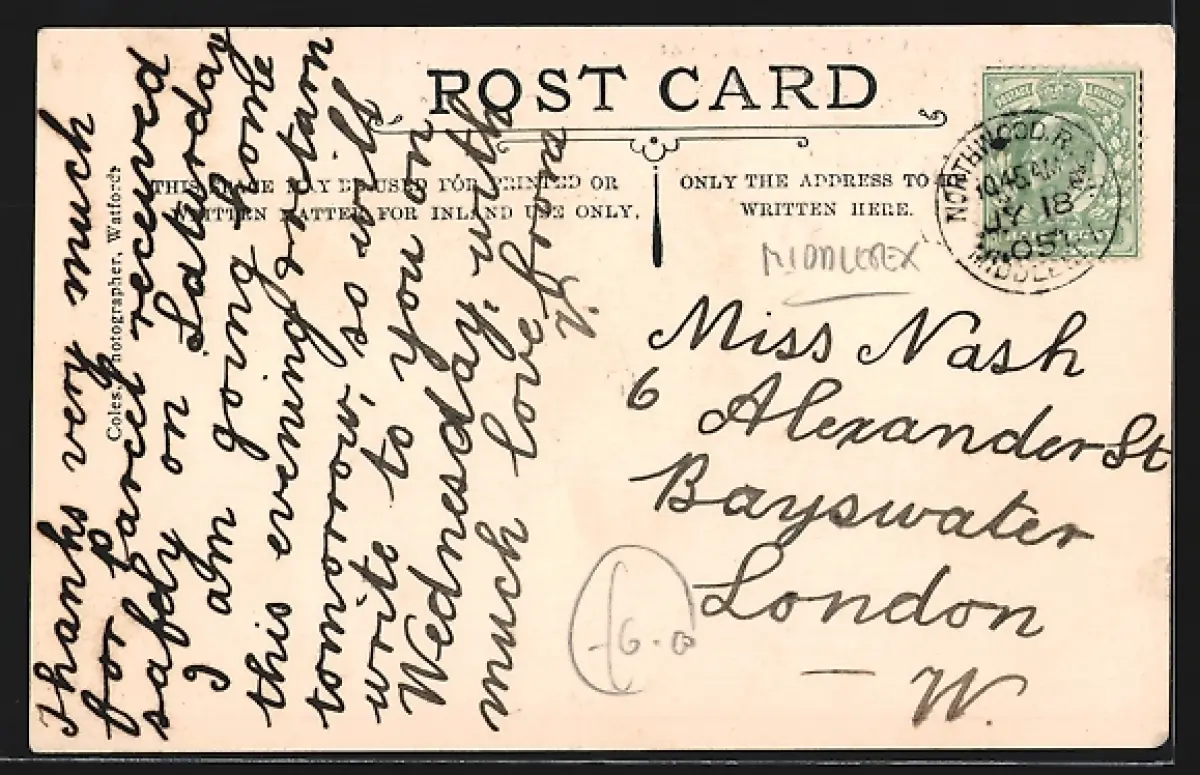 POST CARD
THIS SPACE MAY BE USED FOR PRINTED OR
WRITTEN MATTER FOR INLAND USE ONLY.
ONLY THE ADDRESS TO BE
WRITTEN HERE.
MIDDLESEX
NORTHWOOD. R.
10.45 AM
JY 18
05
MIDDLE
Miss Nash
6 Alexander St
Bayswater
London
W.
Thanks very much
for parcel received
safely on Saturday
I am going home
this evening return
tomorrow, so will
write to you on
Wednesday, with
much love from
V.
Coles, Photographer, Watford
6.0